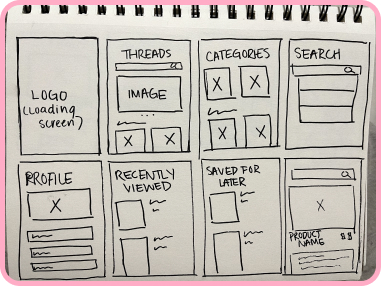 LOGO
(Loading
screen)
THREADS
IMAGE
CATEGORIES
SEARCH
PROFILE
RECENTLY
VIEWED
SAVED FOR
LATER
PRODUCT
NAME
$$